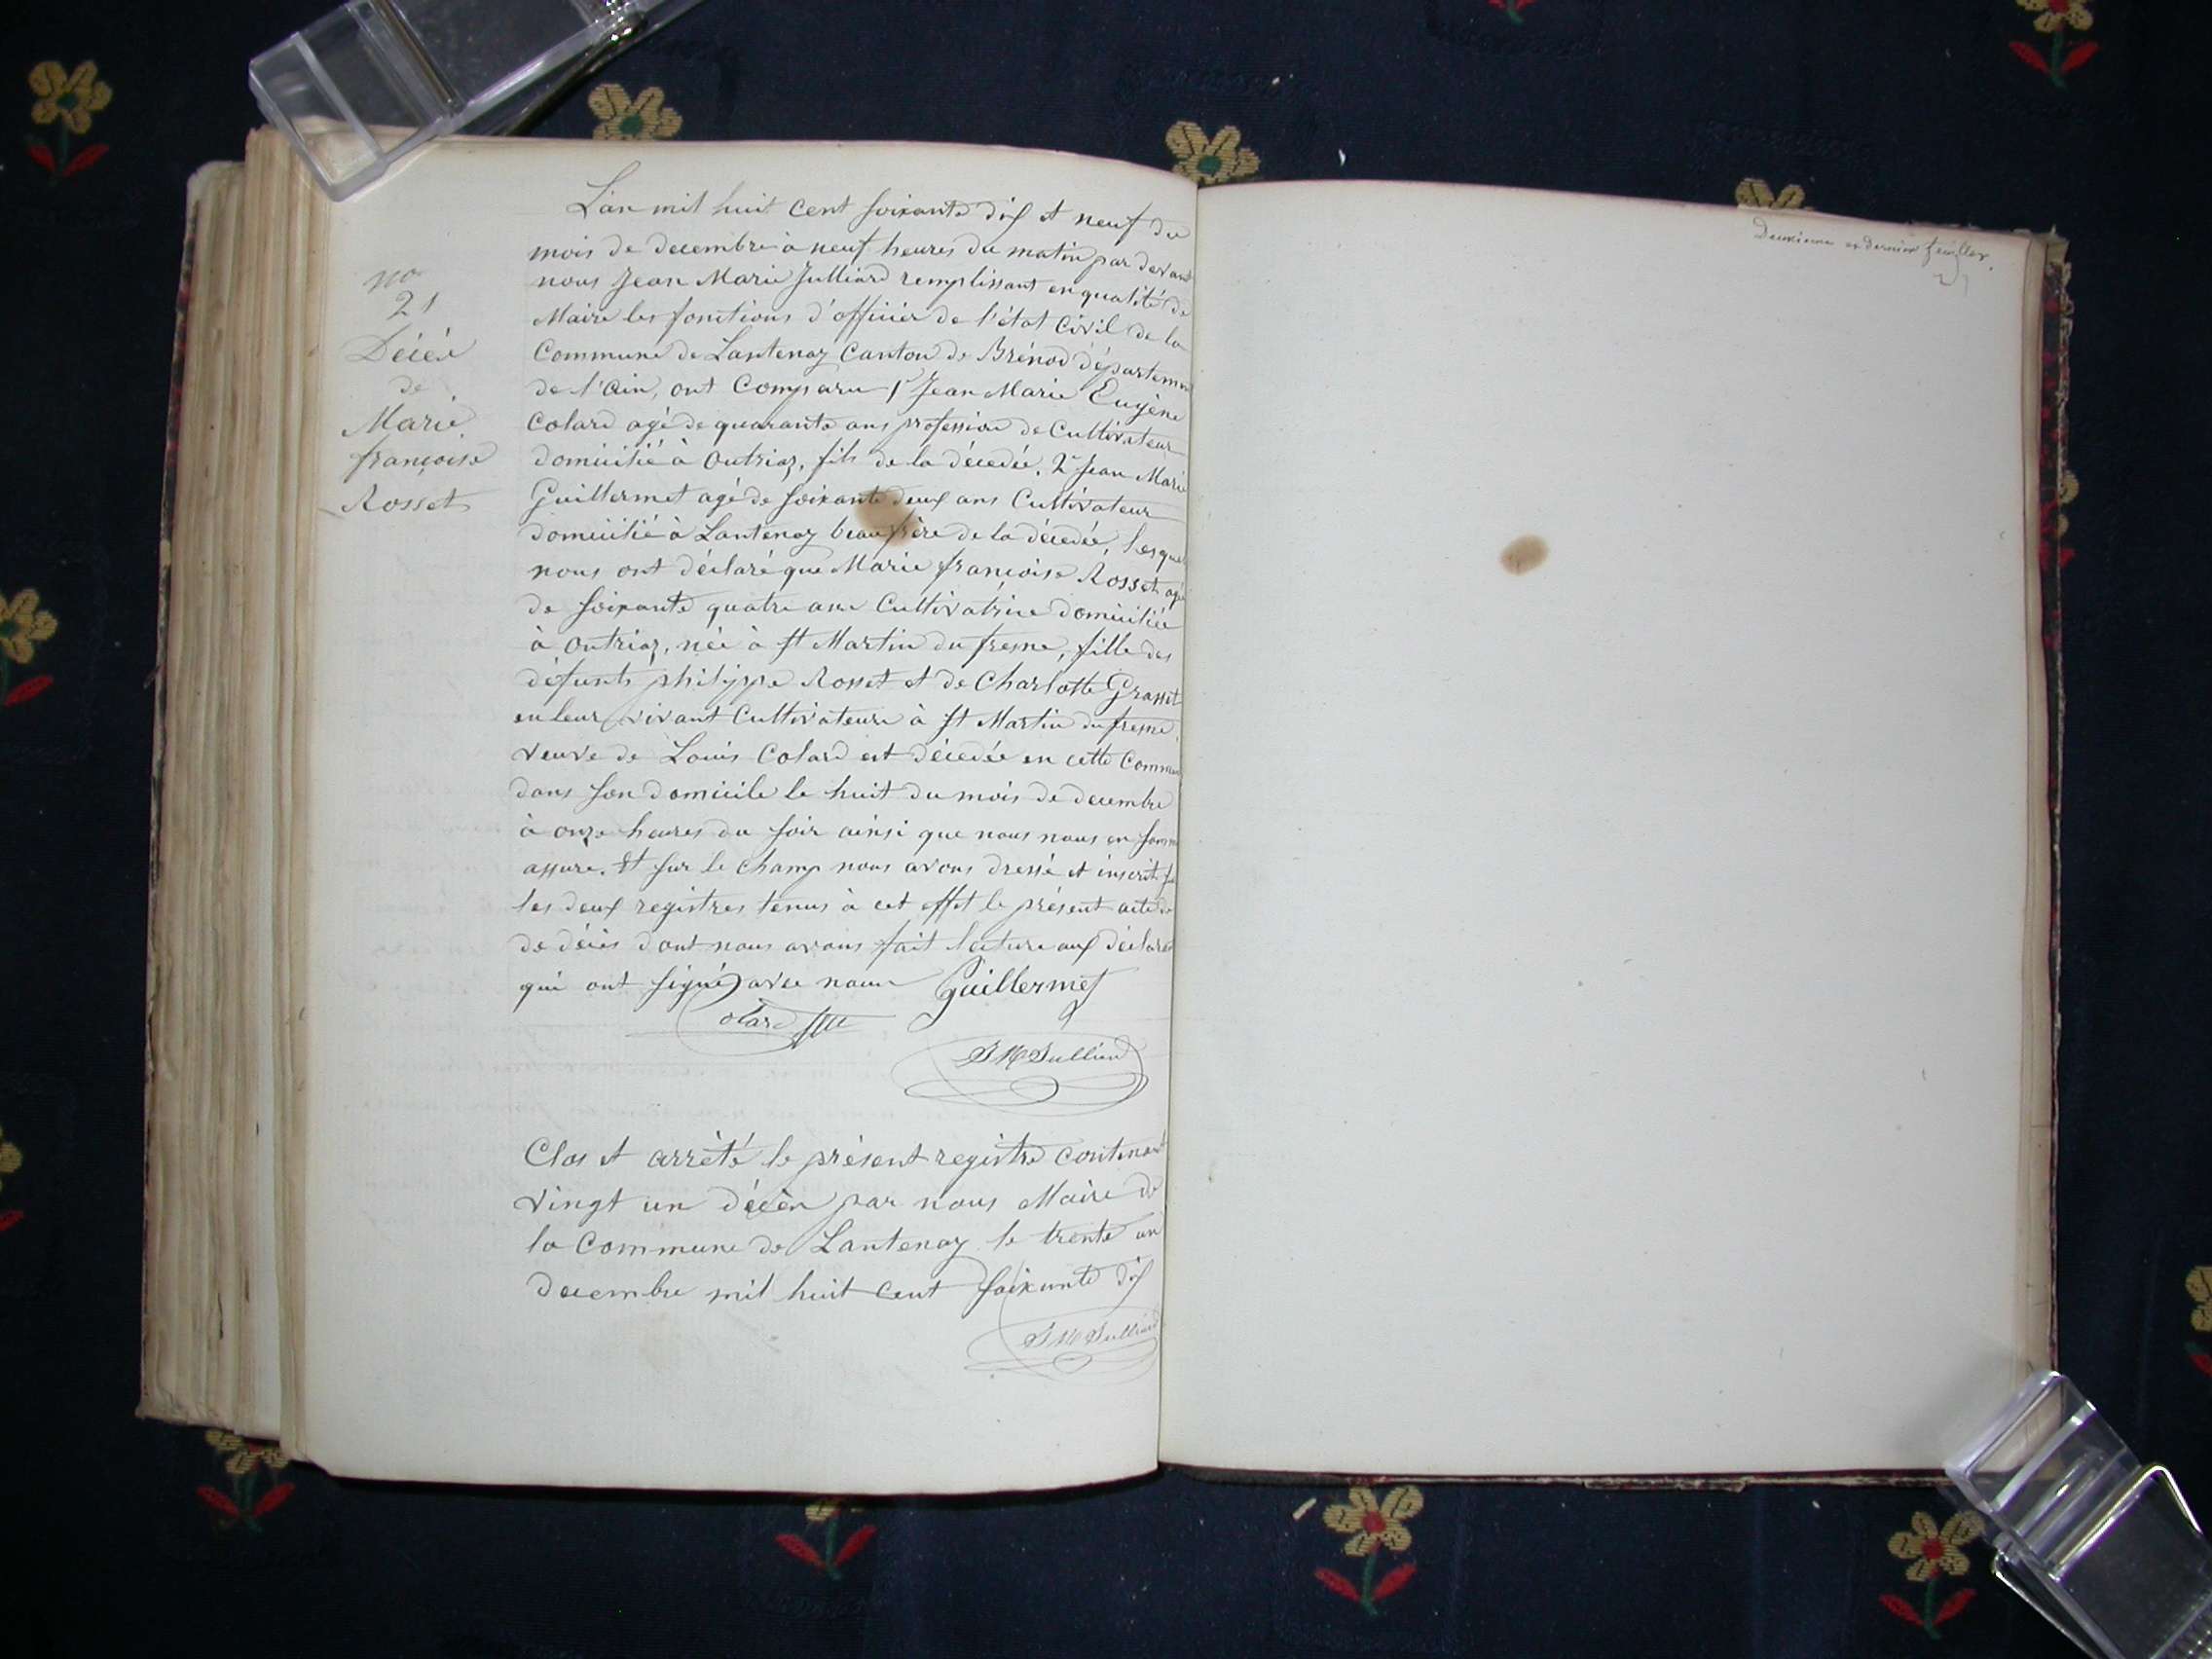 L'an mil huit cent soixante dix et neuf du
mois de decembre à neuf heures du matin par devant
nous Jean Marie Julliard remplissant en qualité de
Maire les fonctions d'officier de l'état Civil de la
Commune de Lantenay Canton de Brénod département
de l'Ain, ont Comparu 1° Jean Marie Eugène
Colard agé de quarante ans profession de Cultivateur
domicilié à Outriaz, fils de la décedée. 2° Jean Marie
Guillermet agé de soixante deux ans Cultivateur
domicilié à Lantenay beau frère de la décedée, lesquel
nous ont déclaré que Marie françoise Rosset agé
de soixante quatre ans Cultivatrice domiciliée
à Outriaz, née à St Martin du fresne, fille des
défunts philippe Rosset et de Charlotte Grasset
en leur vivant Cultivateurs à St Martin du fresne,
veuve de Louis Colard est décedée en cette Commun
dans son domicile le huit du mois de decembre
à onze heures du soir ainsi que nous nous en somm
assure. Et sur le champ nous avons dressé et inscrit su
les deux registres tenus à cet effet le présent acte de
de décès dont nous avons fait lecture aux déclaran
qui ont signé avec nous Guillermet
Colard
J M Julliard
n°
21
Décès
de
Marie
françoise
Rosset
Clos et arrêté le présent registre contenant
vingt un décès par nous Maire de
la Commune de Lantenay le trente un
decembre mil huit cent soixante dix
J M Julliard
Deuxieme et dernier feuillet.